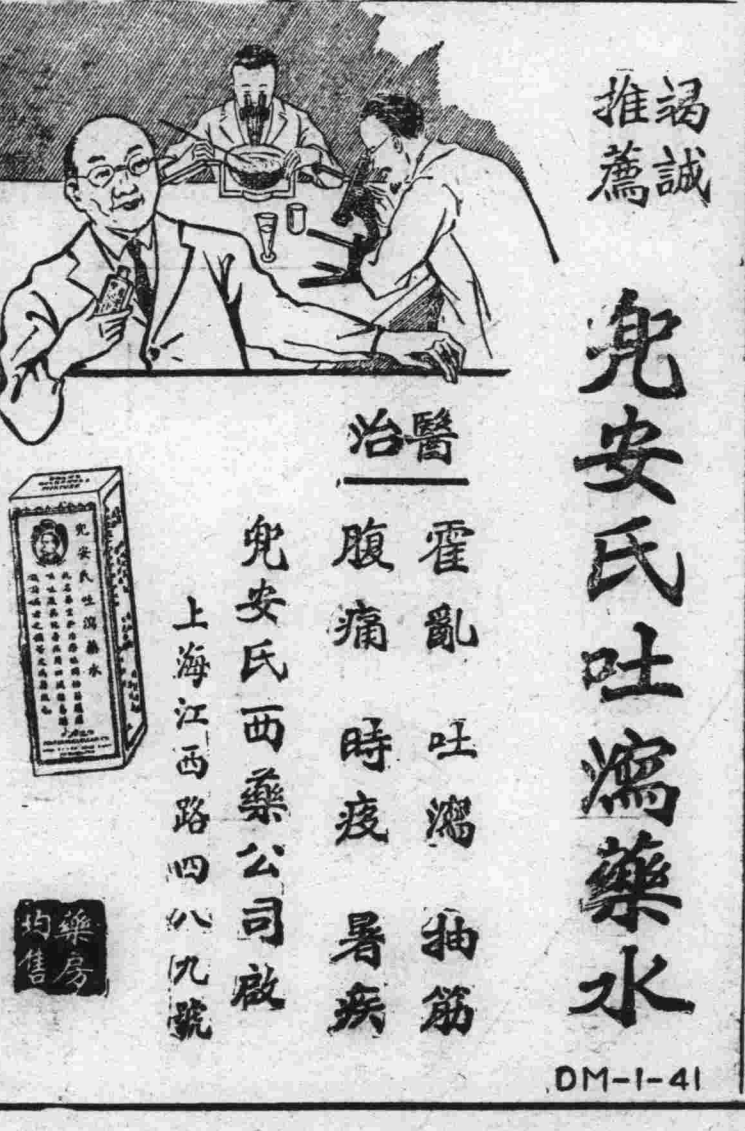 竭誠
推薦
兜安氏吐瀉藥水
醫治
霍亂 吐瀉 抽筋
腹痛 時疫 暑疾
兜安氏西藥公司啟
上海江西路四八九號
兜安氏吐瀉藥水
藥房
均售
DM-1-41